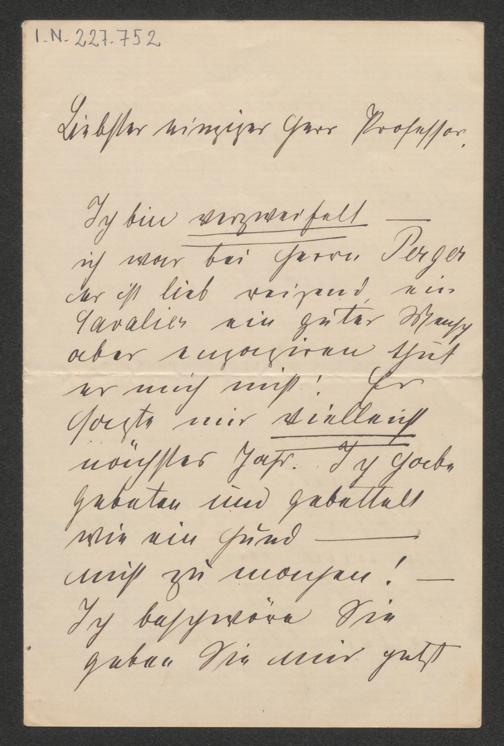 I.N. 227.752
Liebster einziger Herr Professor,
Ich bin verzweifelt —
ich war bei Herrn Perger
er ist lieb reizend, ein
Cavalier ein guter Mensch
aber engagiren thut
er mich nicht! Er
sagte mir vielleicht
nächstes Jahr. Ich habe
gebeten und gebettelt
wie ein Hund —
nichts zu machen! —
Ich beschwöre Sie
geben Sie mir jetzt